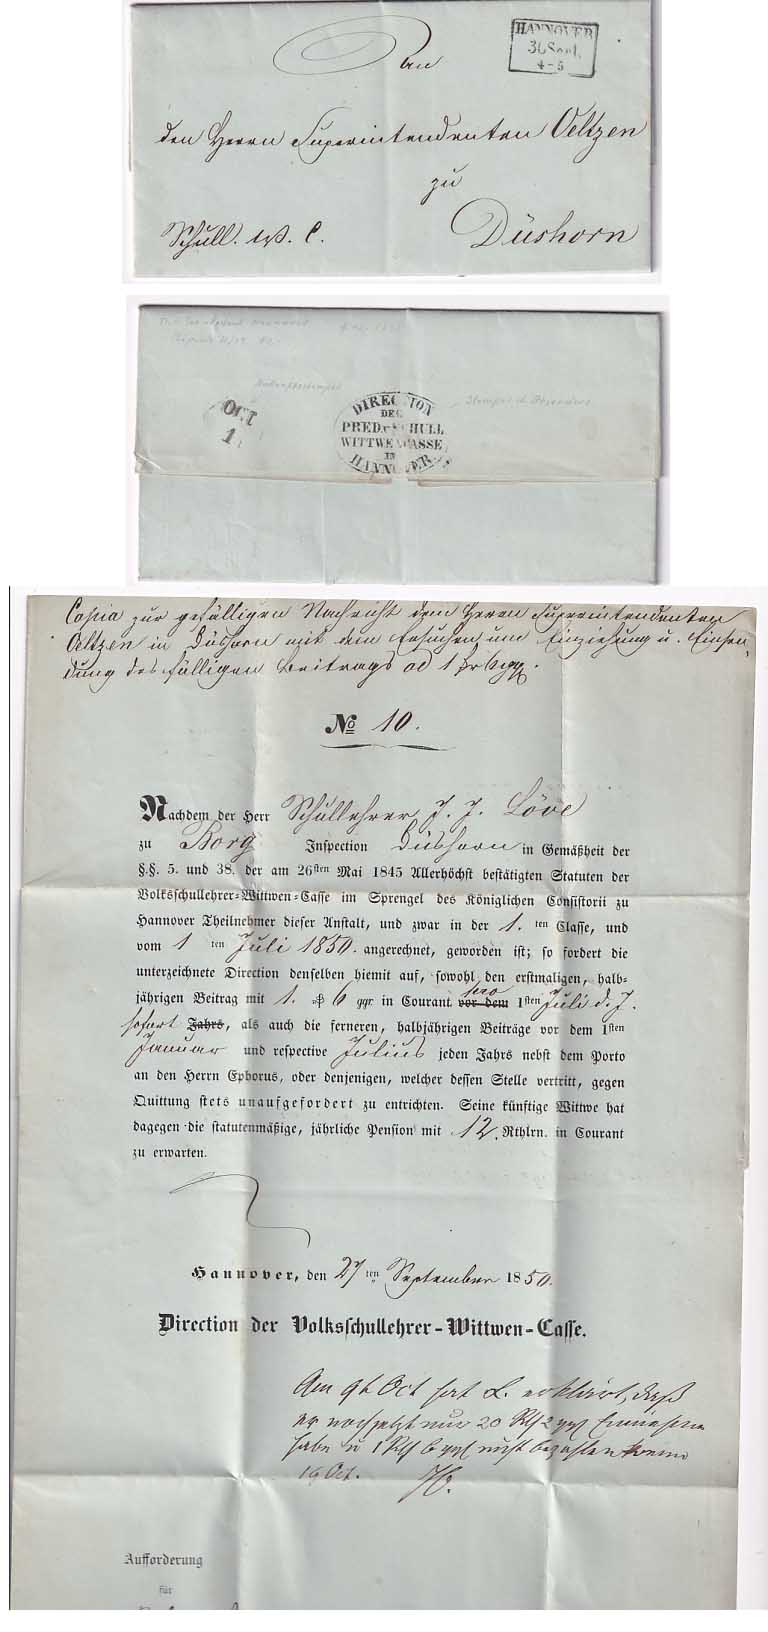 An
HANNOVER
30 Sept.
4-5
den Herrn Superintendenten Oeltzen
zu
Düshorn
Schull. W. C.
OCT
1
DIRECTION
DER
PRED. & SCHULL
WITTWEN CASSE
IN
HANNOVER
Copia zur gefälligen Nachricht dem Herrn Superintendenten
Oeltzen in Düshorn mit dem Ersuchen um Einziehung u. Einsen-
dung des fälligen Beitrags ad 1 Thlr 6 ggr.
No 10.
Nachdem der Herr Schullehrer J. J. Löve
zu Borg Inspection Düshorn in Gemäßheit der
§.§. 5. und 38. der am 26sten Mai 1845 Allerhöchst bestätigten Statuten der
Volksschullehrer-Wittwen-Casse im Sprengel des Königlichen Consistorii zu
Hannover Theilnehmer dieser Anstalt, und zwar in der 1. ten Classe, und
vom 1 ten Juli 1850. angerechnet, geworden ist; so fordert die
unterzeichnete Direction denselben hiemit auf, sowohl den erstmaligen, halb-
jährigen Beitrag mit 1. ₰ 6 ggr. in Courant vor dem pro 1sten Juli d. J.
sofort Jahrs, als auch die ferneren, halbjährigen Beiträge vor dem 1sten
Januar und respective Julius jeden Jahrs nebst dem Porto
an den Herrn Ephorus, oder denjenigen, welcher dessen Stelle vertritt, gegen
Quittung stets unaufgefordert zu entrichten. Seine künftige Wittwe hat
dagegen die statutenmäßige, jährliche Pension mit 12. Rthlrn. in Courant
zu erwarten.
Hannover, den 27 ten September 1850.
Direction der Volksschullehrer-Wittwen-Casse.
Am 9t Oct hat L. erklärt, daß
er noch jetzt nur 20 Rth 2 ggr Einnahme
habe u 1 Rth 6 ggr nicht bezahlen könne
Oct.
Aufforderung
für